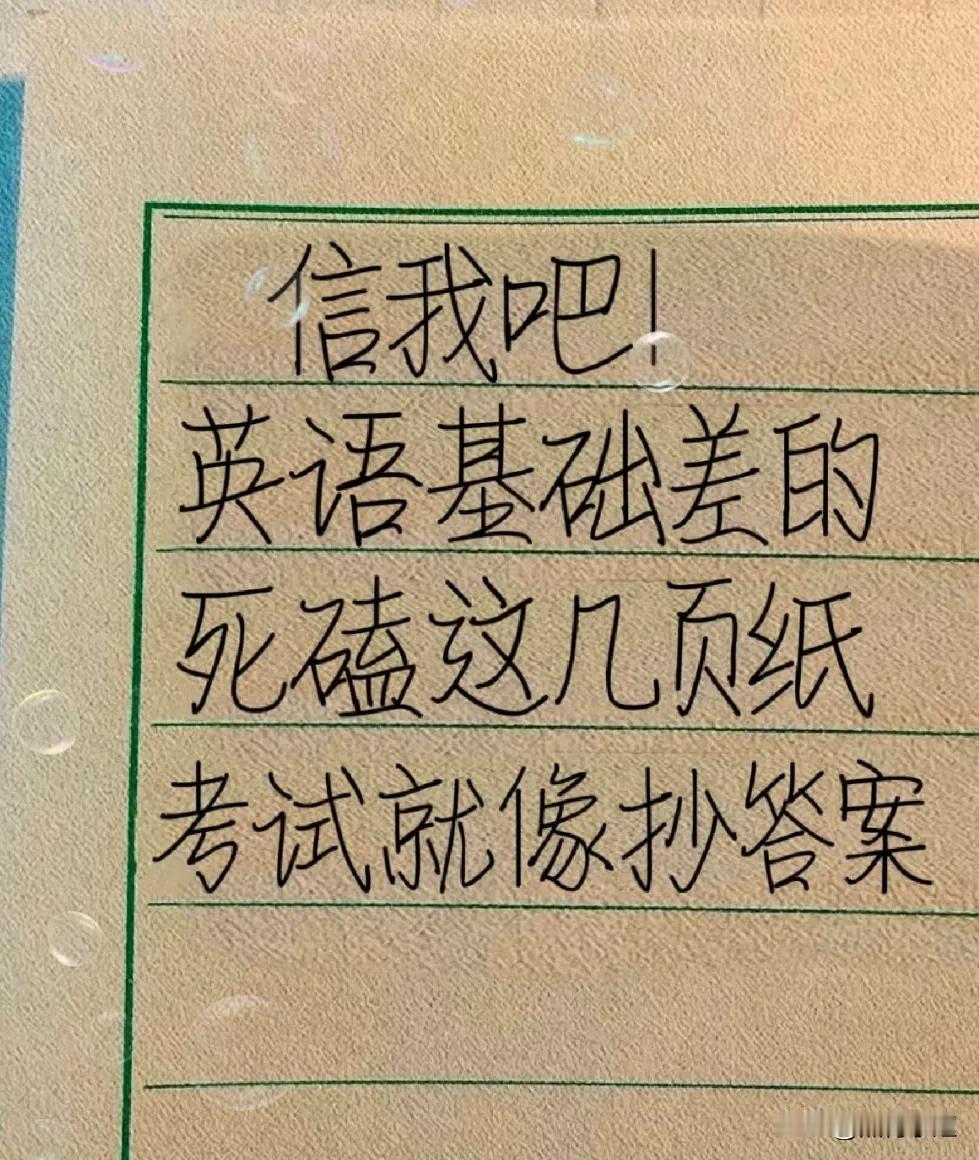 信我吧!
英语基础差的
死磕这几页纸
考试就像抄答案